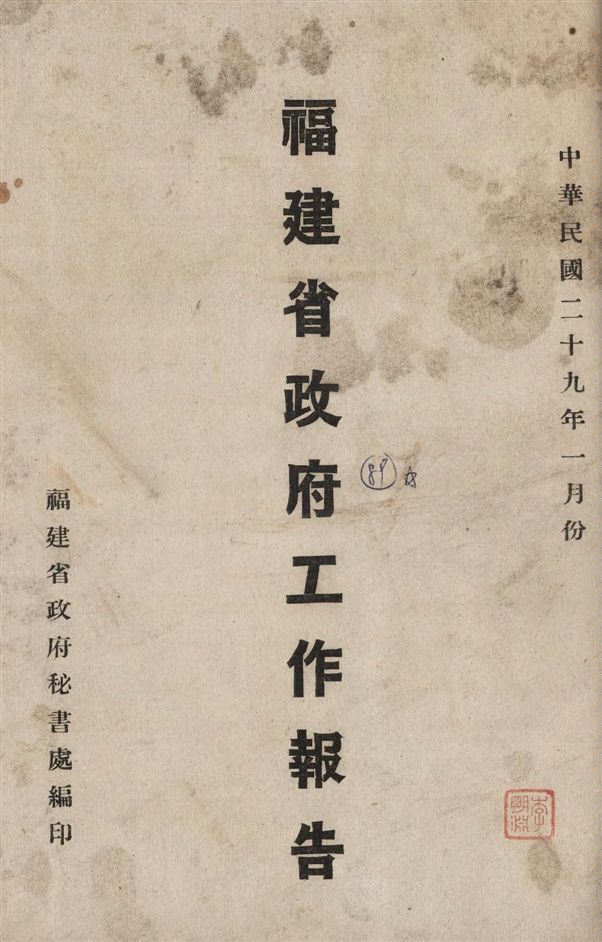 中華民國二十九年一月份
福建省政府工作報告
福建省政府秘書處編印